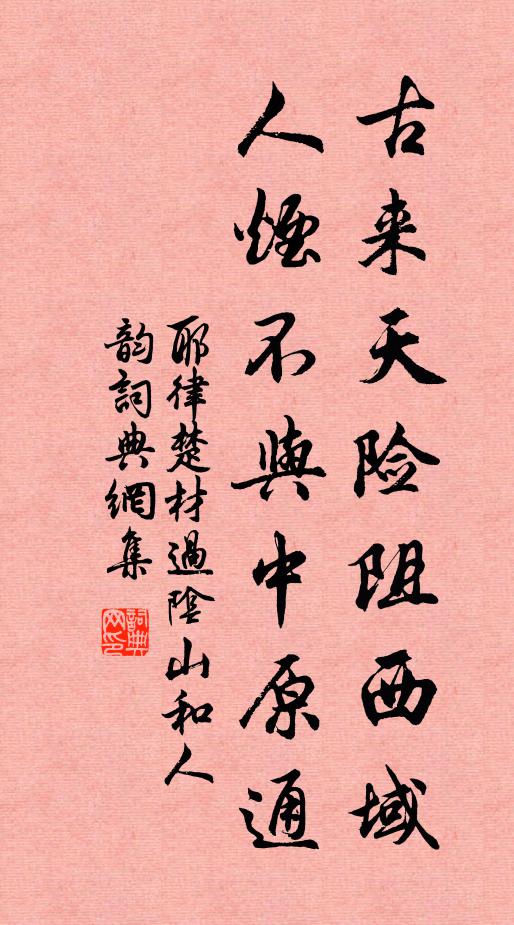 古来天险阻西域
人煙不與中原通
耶律楚材過陰山和人
韵詞典網集
詞典
网印